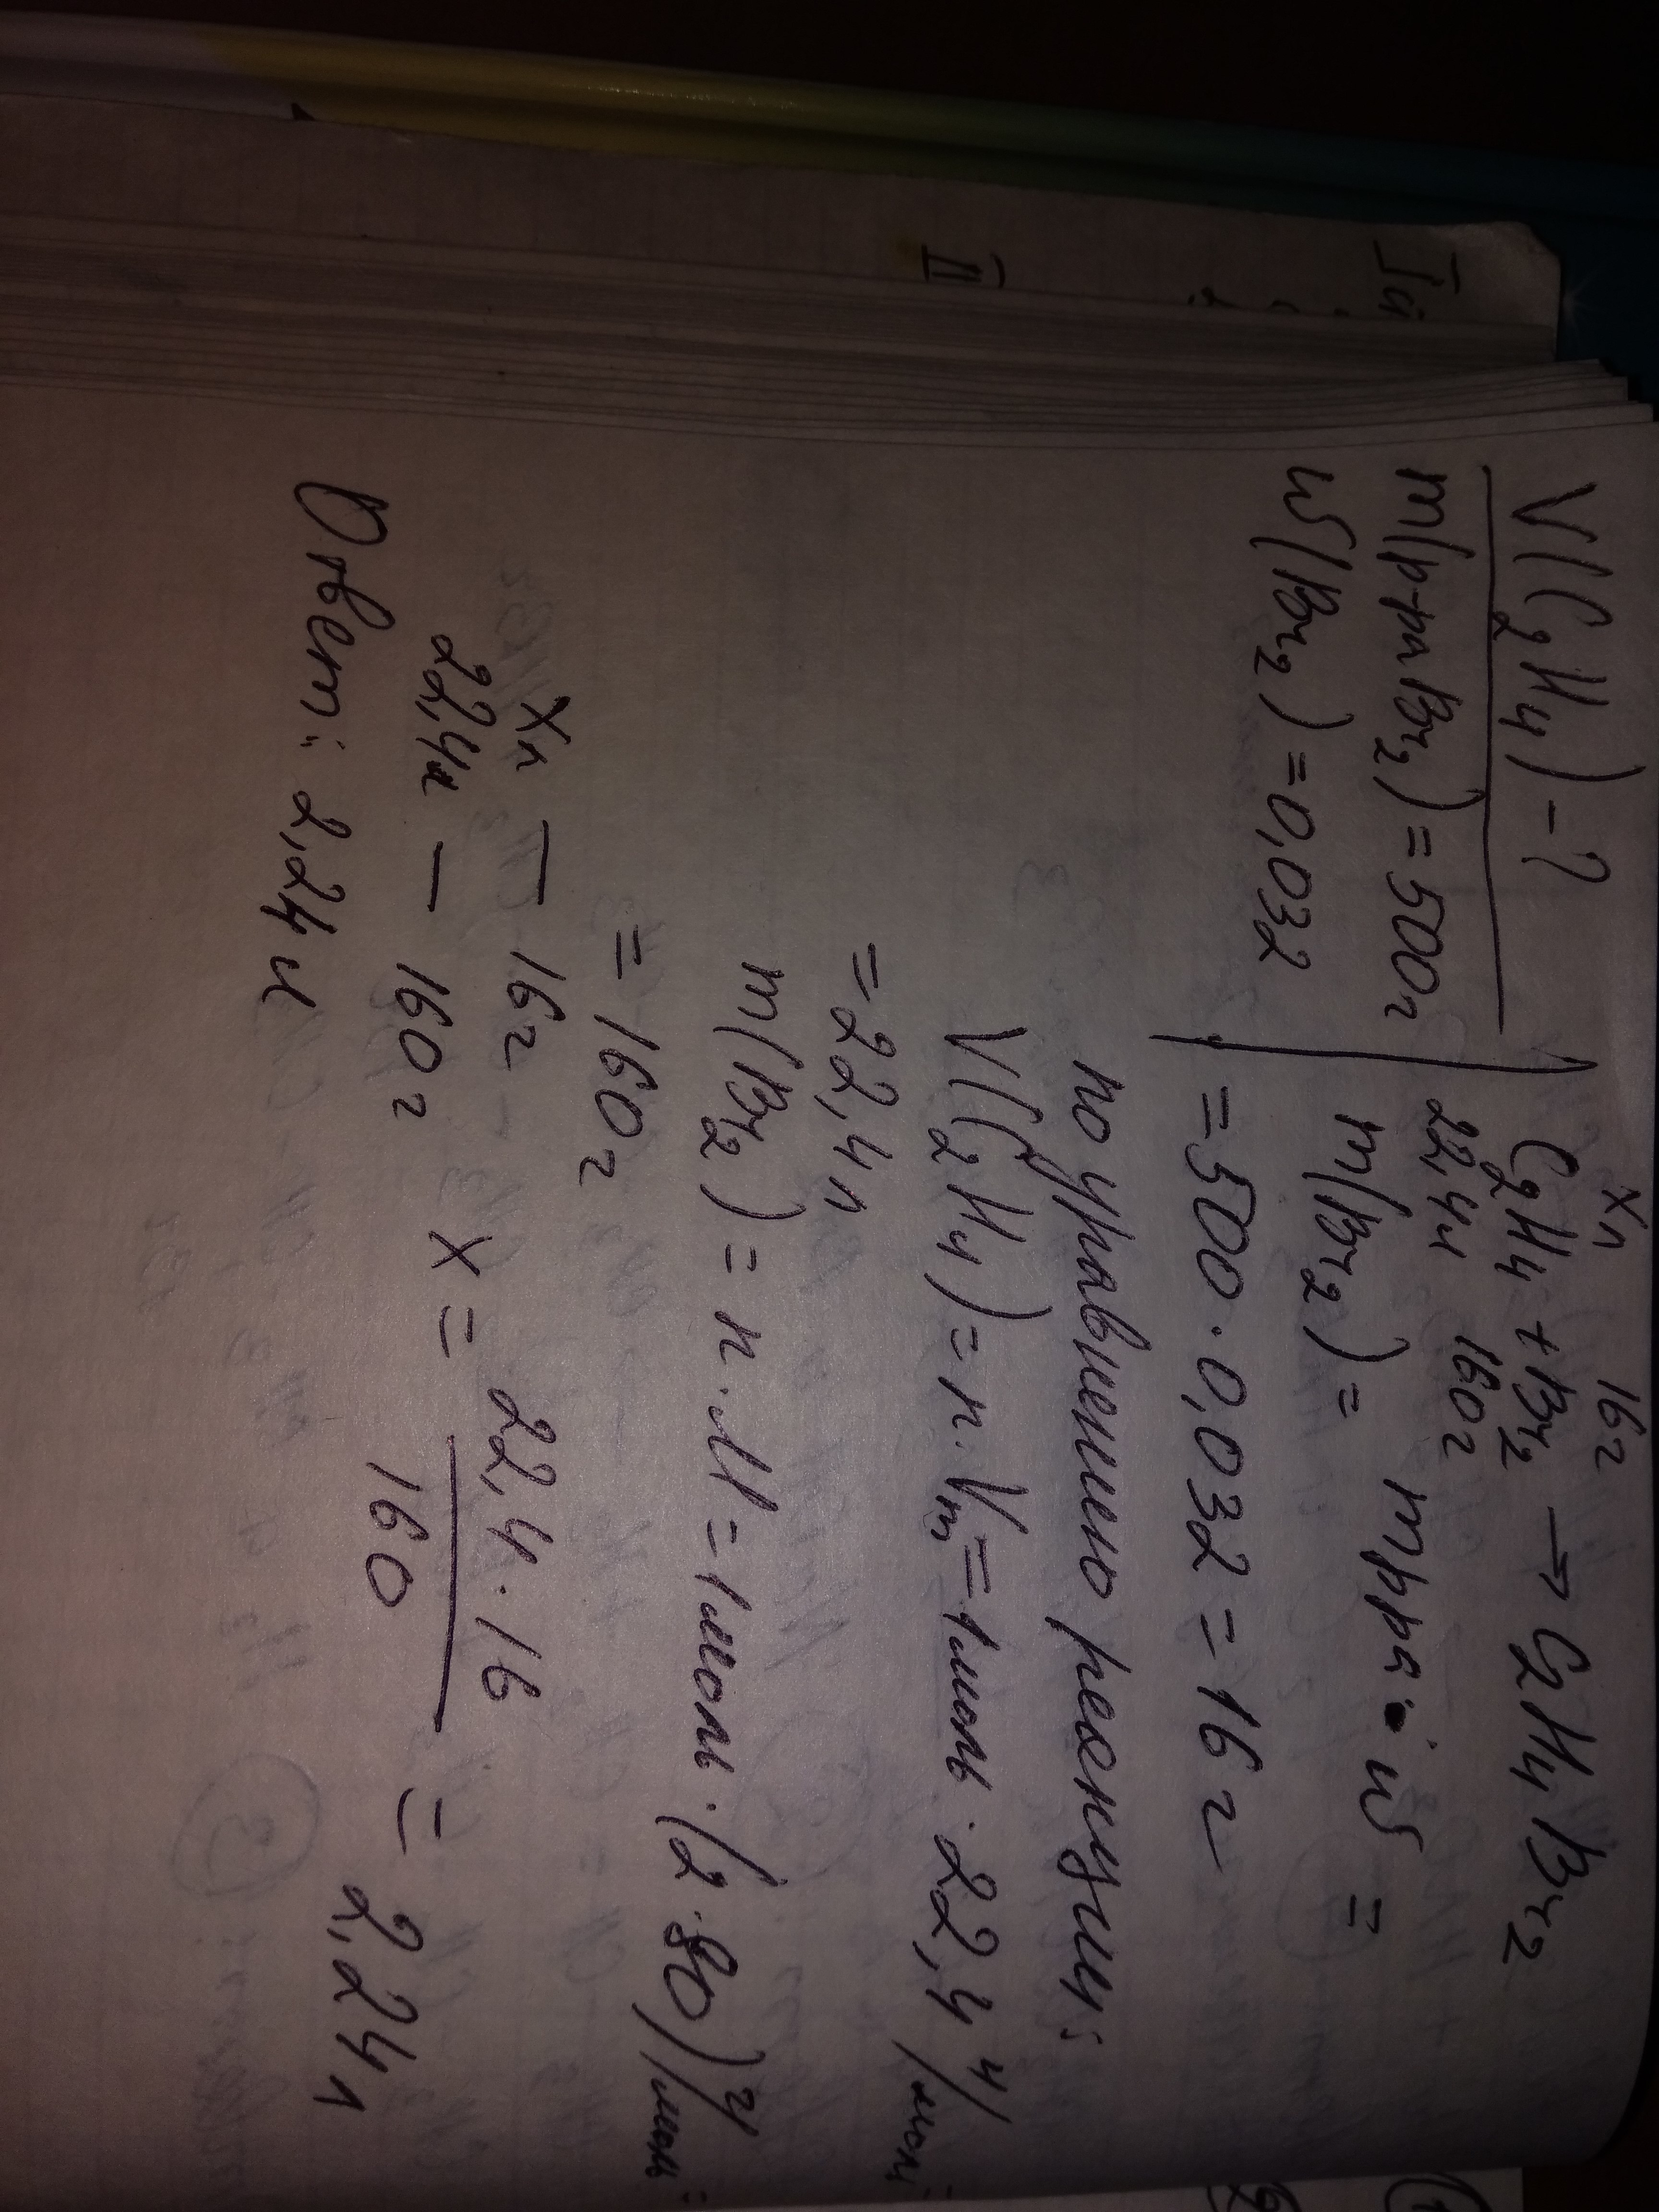 V(C₂H₄) - ?
m(р-ра Br₂) = 500г
w(Br₂) = 0,032
xл 16г
C₂H₄ + Br₂ → C₂H₄Br₂
22,4л 160г
m(Br₂) = mр-ра · w =
= 500 · 0,032 = 16 г
по уравнению реакции:
V(C₂H₄) = n · Vm = 1моль · 22,4 л/моль
= 22,4 л
m(Br₂) = n · M = 1моль · (2 · 80) г/моль =
= 160 г
xл — 16г
22,4л — 160г
x = 22,4 · 16 / 160 = 2,24 л
Ответ: 2,24 л
II